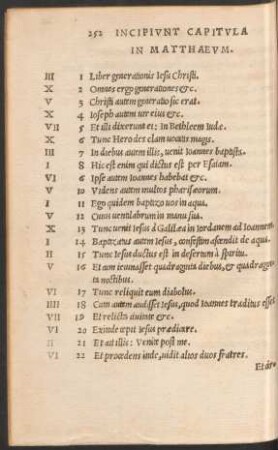 252 INCIPIVNT CAPITVLA
IN MATTHAEVM.
III 1 Liber generationis Iesu Christi.
X 2 Omnes ergo generationes &c.
V 3 Christi autem generatio sic erat.
X 4 Ioseph autem uir eius &c.
VII 5 Et illi dixerunt ei: In Bethleem Iudæ.
X 6 Tunc Herodes clam uocatis magis.
III 7 In diebus autem illis, uenit Ioannes baptista.
I 8 Hic est enim qui dictus est per Esaiam.
VI 6 Ipse autem Ioannes habebat &c.
V 10 Videns autem multos phariseorum.
I 11 Ego quidem baptizo uos in aqua.
V 12 Cuius uentilabrum in manu sua.
X 13 Tunc uenit Iesus à Galilæa in iordanem ad Ioannem.
I 14 Baptizatus autem Iesus, confestim ascendit de aqua.
II 15 Tunc Iesus ductus est in desertum à spiritu.
V 16 Et cum ieiunasset quadraginta diebus, & quadraginta noctibus.
VI 17 Tunc reliquit eum diabolus.
IIII 18 Cum autem audisset Iesus, quod Ioannes traditus esset
VII 19 Et relicta ciuitate &c.
VI 20 Exinde cœpit Iesus prædicare.
II 21 Et ait illis: Venite post me.
VI 22 Et procedens inde, uidit alios duos fratres.